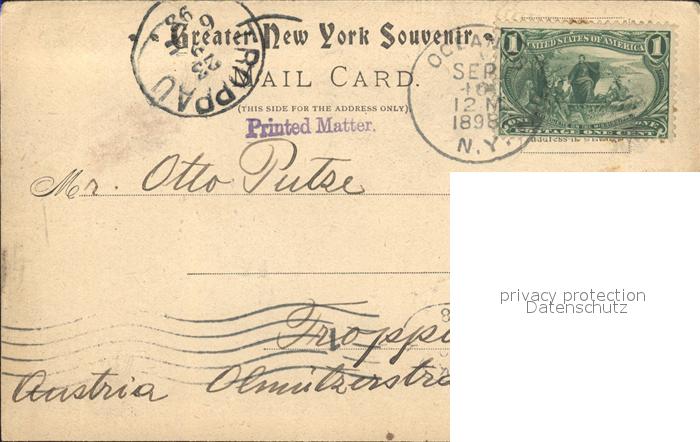 Greater New York Souvenir
MAIL CARD.
(THIS SIDE FOR THE ADDRESS ONLY)
Printed Matter.
TROPPAU
23
98
OCEAN
SEP
10
12 M
1898
N.Y.
1 UNITED STATES OF AMERICA 1
POSTAGE ONE CENT
Mr. Otto Putze
Troppa
Austria Olmützerstra
privacy protection
Datenschutz